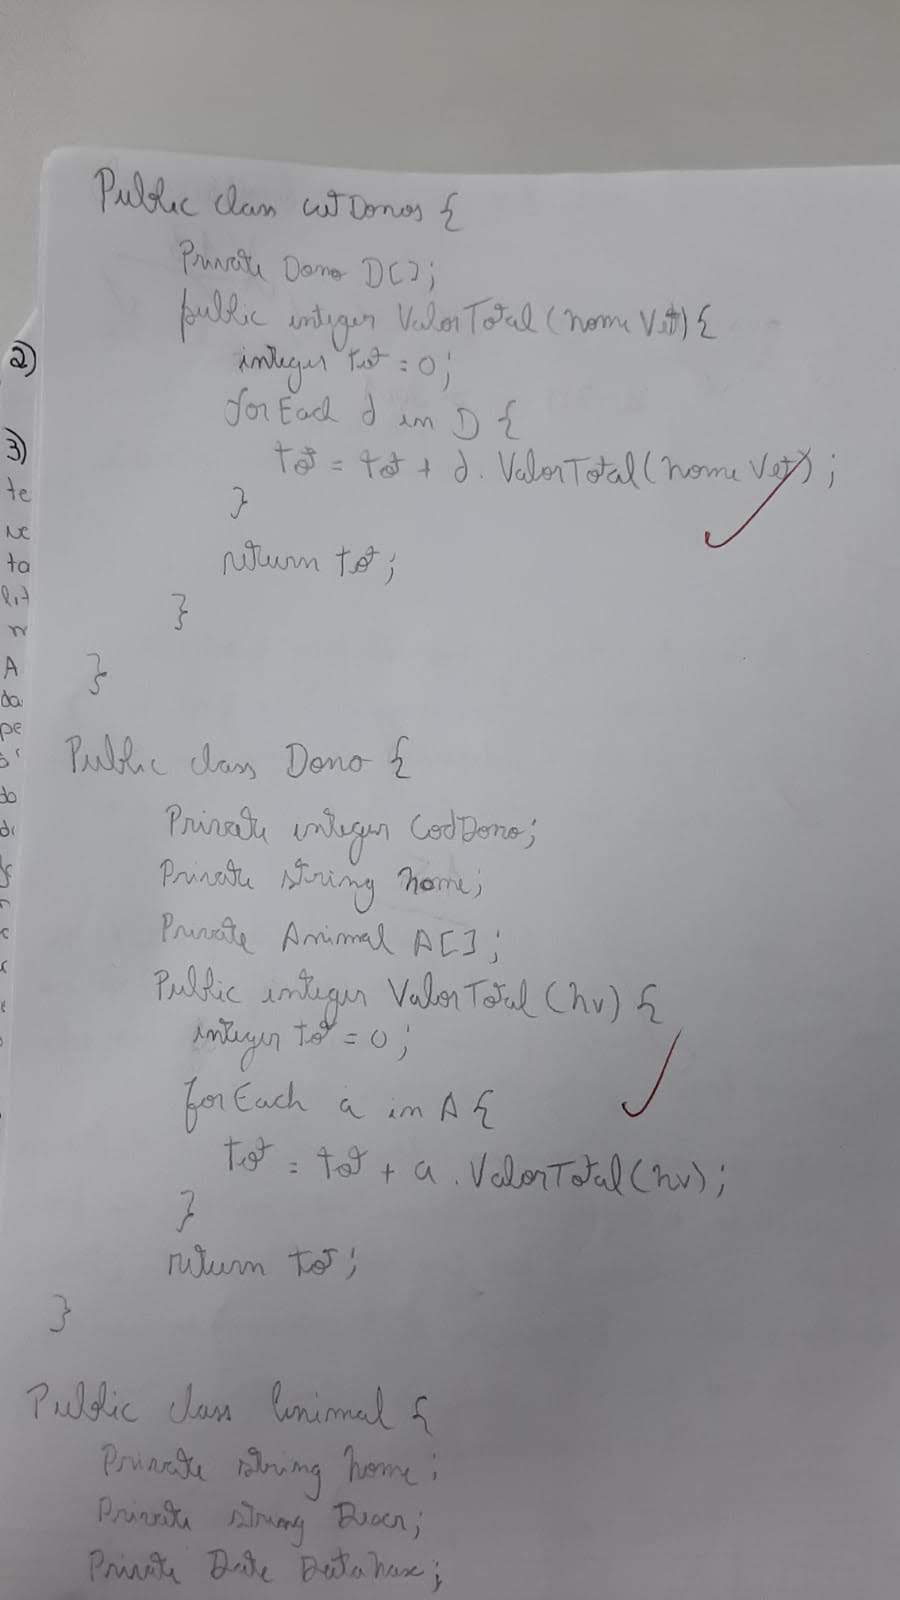 Public class catDonos {
Private Dono D[];
public integer ValorTotal (nomeVet) {
integer tot = 0;
forEach d in D {
tot = tot + d. ValorTotal (nomeVet);
}
return tot;
}
}
Public class Dono {
Private integer CodDono;
Private string nome;
Private Animal A[];
Public integer ValorTotal (nv) {
integer tot = 0;
forEach a in A {
tot = tot + a. ValorTotal (nv);
}
return tot;
}
Public class Animal {
Private string nome;
Private string Descr;
Private Date DataNasc;
2)
3)
te
ta
A
da
pe
do